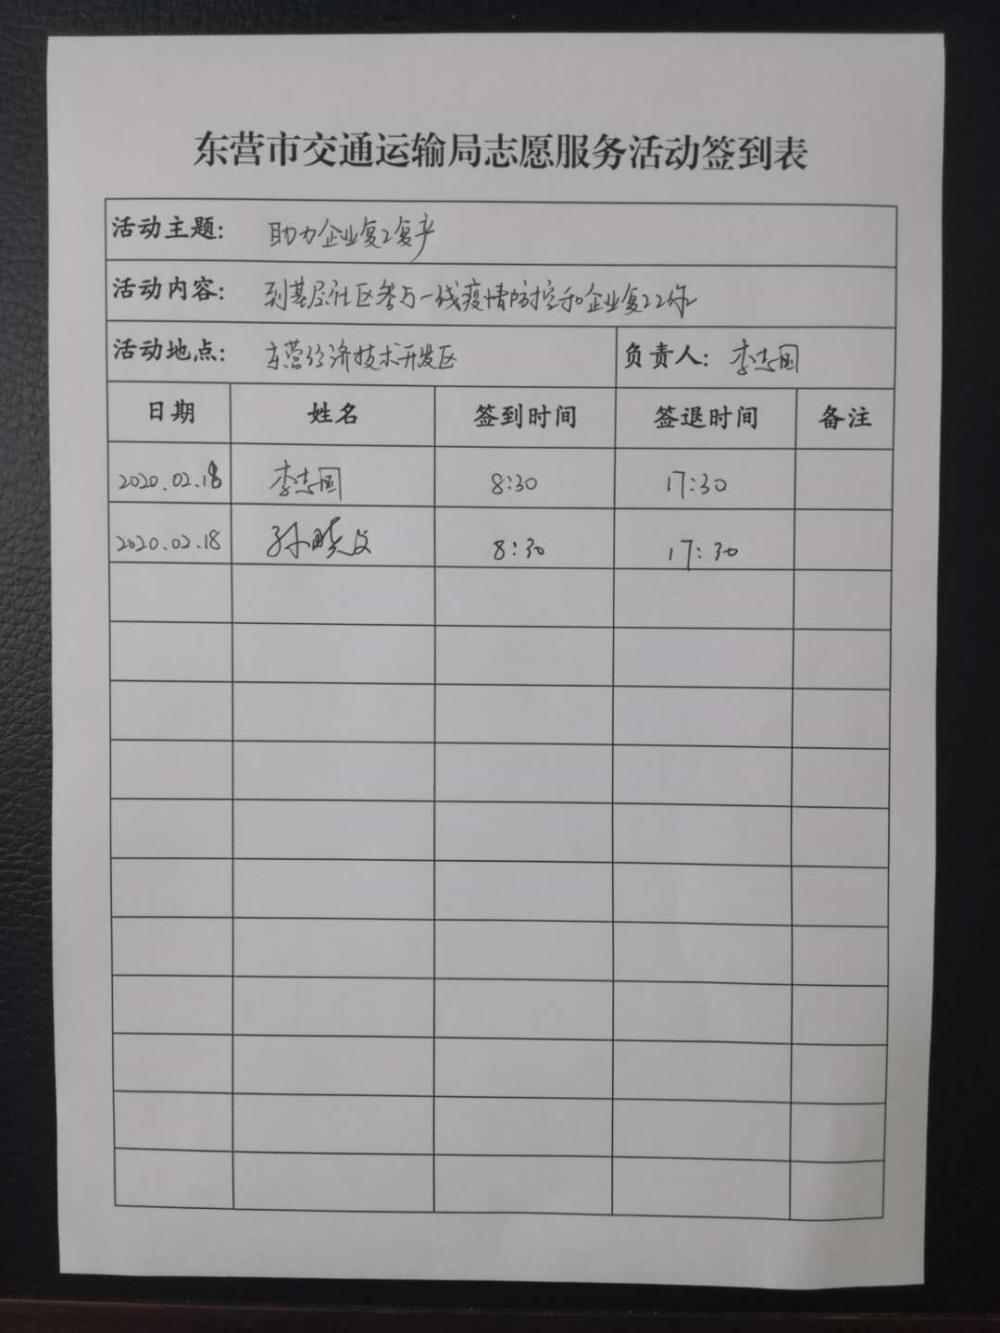 东营市交通运输局志愿服务活动签到表
活动主题: 助力企业复工复产
活动内容: 到基层社区参与一线疫情防控和企业复工工作
活动地点: 东营经济技术开发区 负责人: 李志国
日期 姓名 签到时间 签退时间 备注
2020.02.18 李志国 8:30 17:30
2020.02.18 孙晓文 8:30 17:30